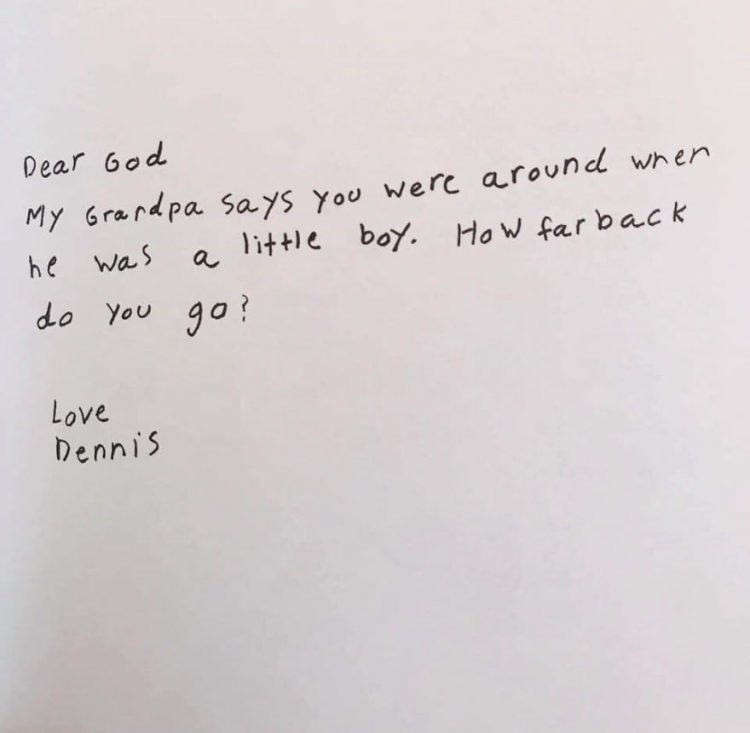 Dear God
My Grandpa says you were around when
he was a little boy. How far back
do you go?
Love
Dennis